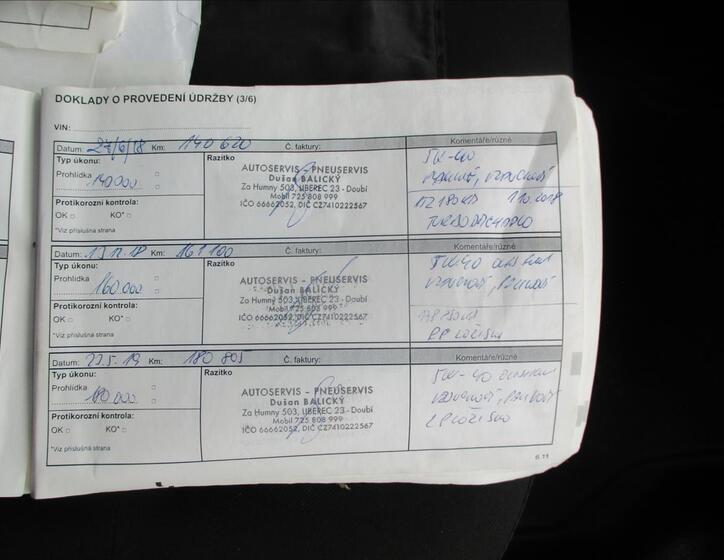 DOKLADY O PROVEDENÍ ÚDRŽBY (3/6)
VIN:
Datum: 27/6/18 Km: 140 620 Č. faktury: Komentáře/různé
Typ úkonu: Razítko
Prohlídka 140 000
Protikorozní kontrola:
OK KO*
*Viz příslušná strana
AUTOSERVIS - PNEUSERVIS
Dušan BALICKÝ
Za Humny 503, LIBEREC 23 - Doubí
Mobil 725 808 999
IČO 66662052, DIČ CZ7410222567
5W-40
1.10.2018
TURBODMYCHADLO
Datum: Km: 161 100 Č. faktury: Komentáře/různé
Typ úkonu: Razítko
Prohlídka 160 000
Protikorozní kontrola:
OK KO*
*Viz příslušná strana
AUTOSERVIS - PNEUSERVIS
Dušan BALICKÝ
Za Humny 503, LIBEREC 23 - Doubí
Mobil 725 808 999
IČO 66662052, DIČ CZ7410222567
5W-40
PP LOŽISKO
Datum: 22.5.19 Km: 180 805 Č. faktury: Komentáře/různé
Typ úkonu: Razítko
Prohlídka 180 000
Protikorozní kontrola:
OK KO*
*Viz příslušná strana
AUTOSERVIS - PNEUSERVIS
Dušan BALICKÝ
Za Humny 503, LIBEREC 23 - Doubí
Mobil 725 808 999
IČO 66662052, DIČ CZ7410222567
5W-40
LP LOŽISKO
6.11